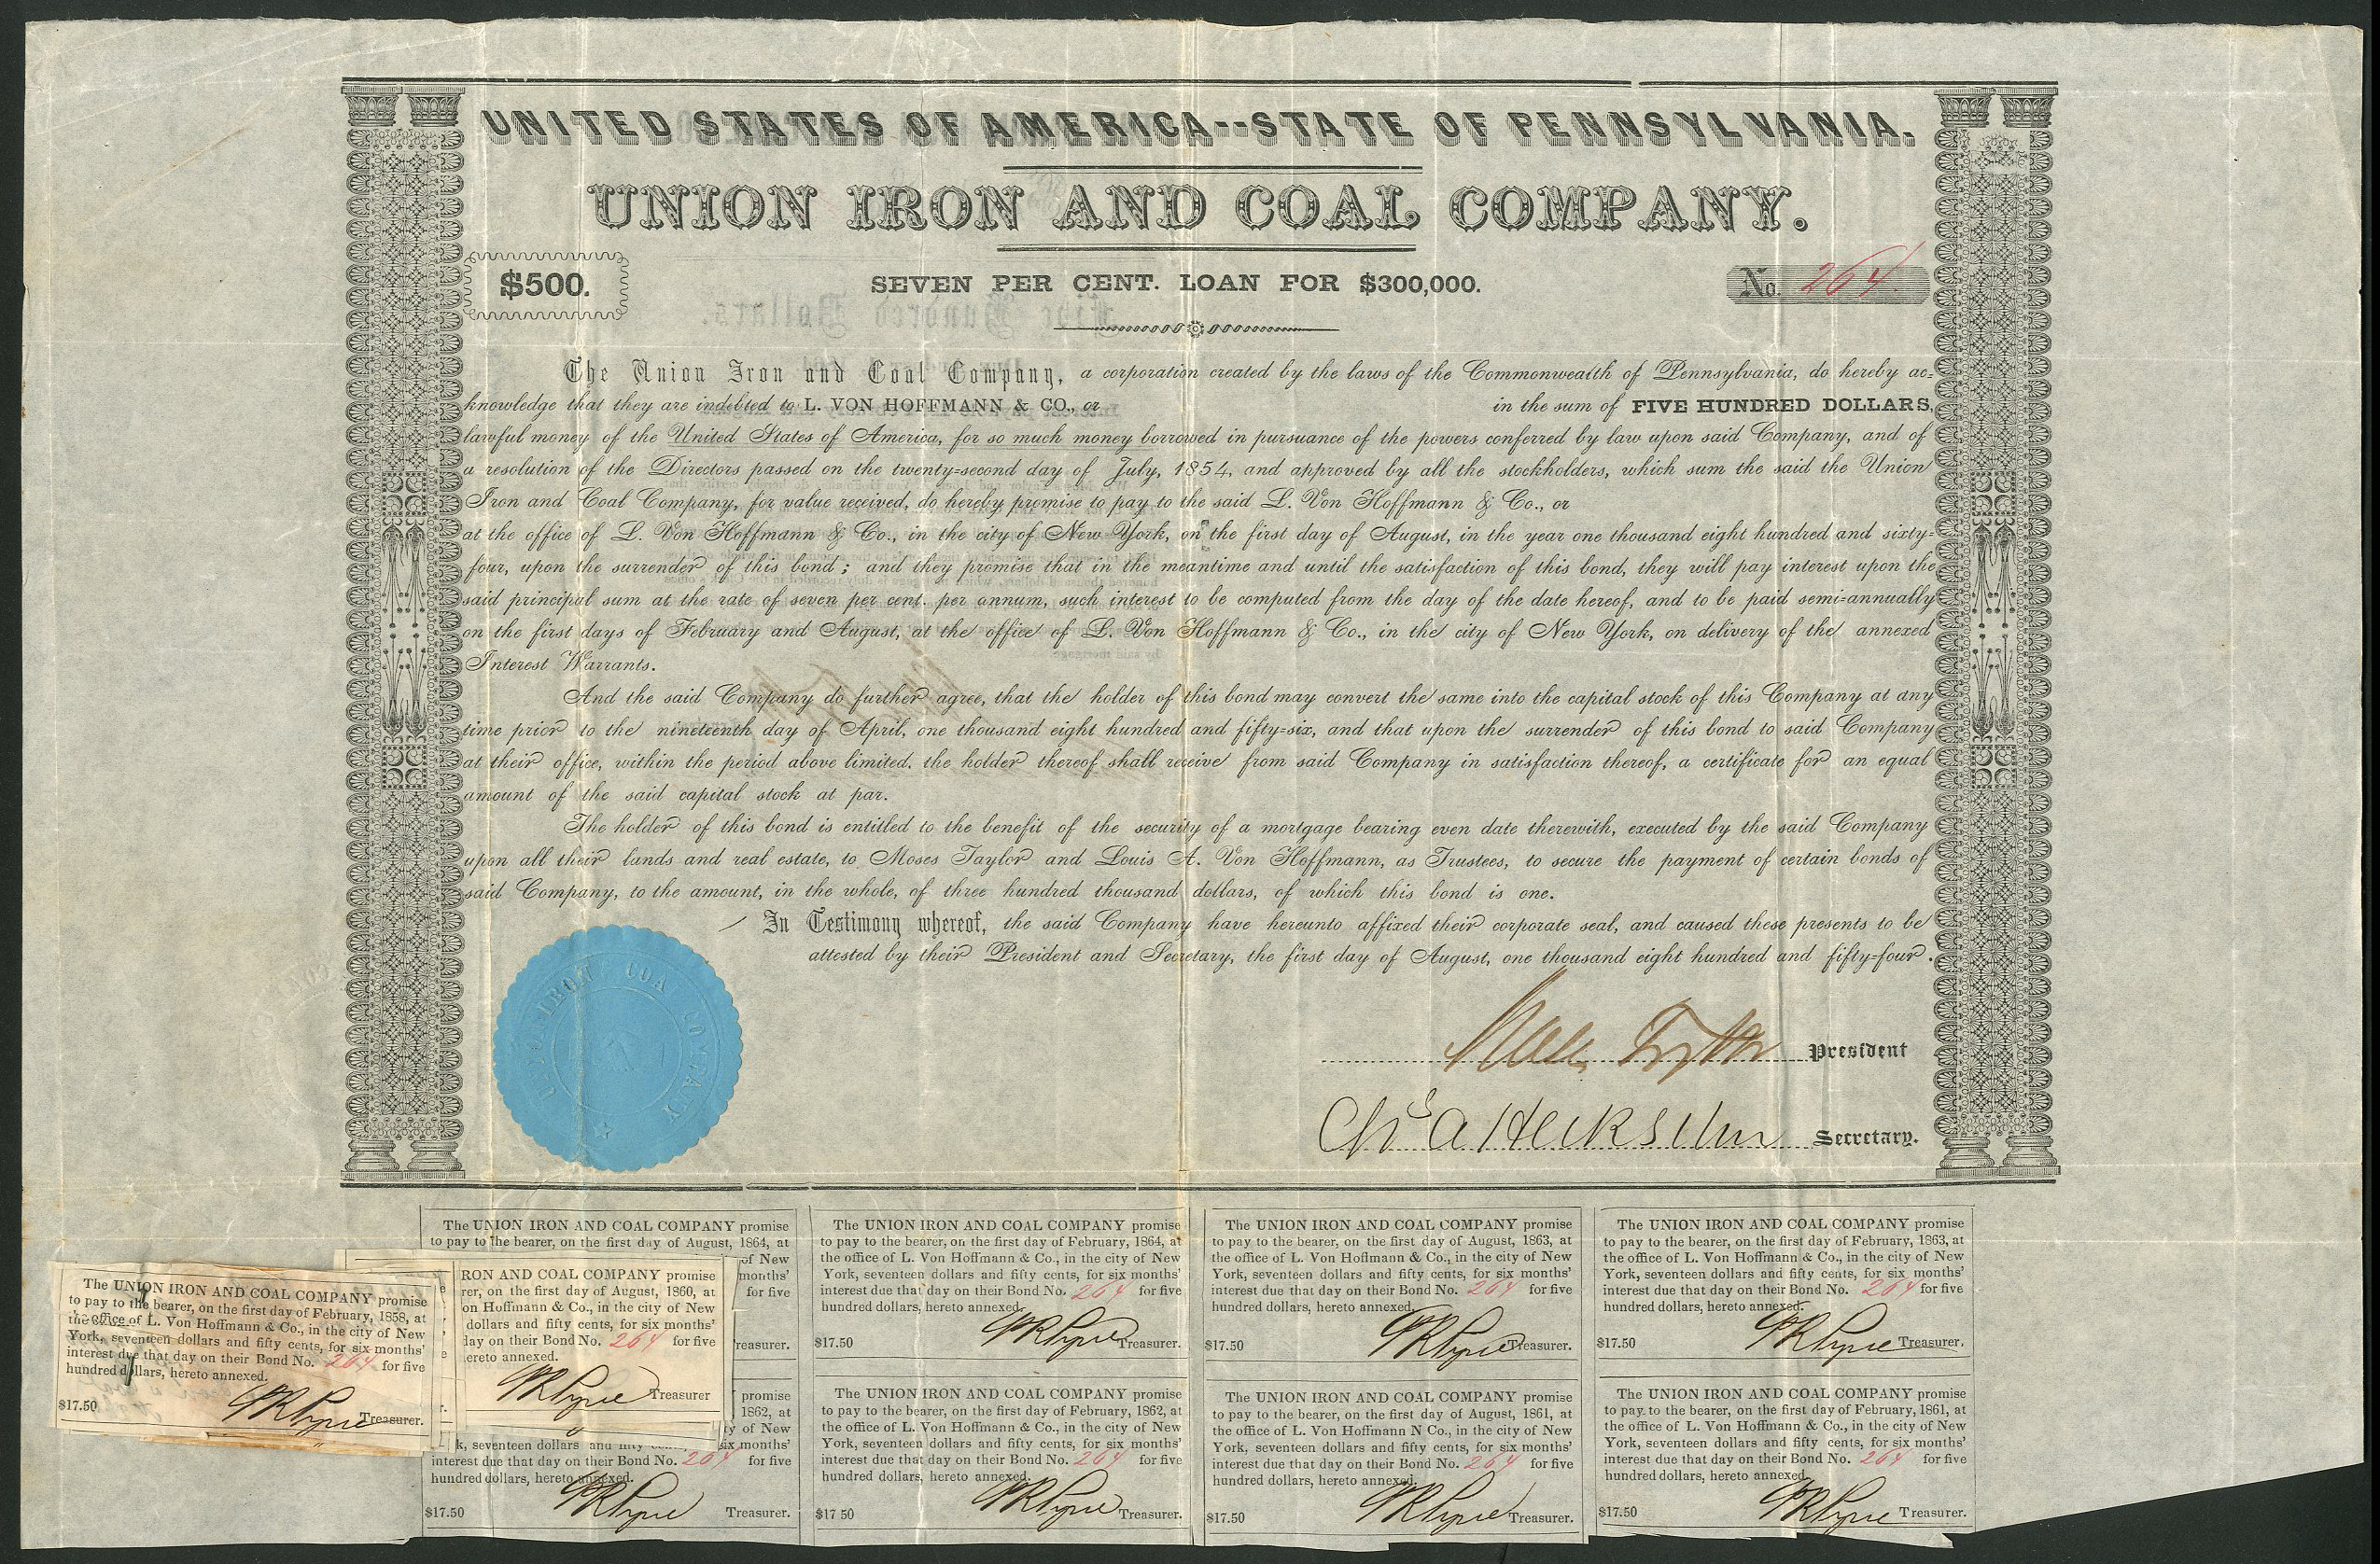 UNITED STATES OF AMERICA--STATE OF PENNSYLVANIA.
UNION IRON AND COAL COMPANY.
$500.
SEVEN PER CENT. LOAN FOR $300,000.
No. 264.
The Union Iron and Coal Company, a corporation created by the laws of the Commonwealth of Pennsylvania, do hereby ac=
knowledge that they are indebted to L. VON HOFFMANN & CO., or in the sum of FIVE HUNDRED DOLLARS,
lawful money of the United States of America, for so much money borrowed in pursuance of the powers conferred by law upon said Company, and of
a resolution of the Directors passed on the twenty=second day of July, 1854, and approved by all the stockholders, which sum the said the Union
Iron and Coal Company, for value received, do hereby promise to pay to the said L. Von Hoffmann & Co., or
at the office of L. Von Hoffmann & Co., in the city of New York, on the first day of August, in the year one thousand eight hundred and sixty=
four, upon the surrender of this bond; and they promise that in the meantime and until the satisfaction of this bond, they will pay interest upon the
said principal sum at the rate of seven per cent. per annum, such interest to be computed from the day of the date hereof, and to be paid semi=annually
on the first days of February and August, at the office of L. Von Hoffmann & Co., in the city of New York, on delivery of the annexed
Interest Warrants.
And the said Company do further agree, that the holder of this bond may convert the same into the capital stock of this Company at any
time prior to the nineteenth day of April, one thousand eight hundred and fifty=six, and that upon the surrender of this bond to said Company
at their office, within the period above limited, the holder thereof shall receive from said Company in satisfaction thereof, a certificate for an equal
amount of the said capital stock at par.
The holder of this bond is entitled to the benefit of the security of a mortgage bearing even date therewith, executed by the said Company
upon all their lands and real estate, to Moses Taylor and Louis A. Von Hoffmann, as Trustees, to secure the payment of certain bonds of
said Company, to the amount, in the whole, of three hundred thousand dollars, of which this bond is one.
In Testimony whereof, the said Company have hereunto affixed their corporate seal, and caused these presents to be
attested by their President and Secretary, the first day of August, one thousand eight hundred and fifty=four.
UNION IRON COA COMPANY
President
Chs A Heckscher Secretary.
The UNION IRON AND COAL COMPANY promise
to pay to the bearer, on the first day of August, 1864, at
of New
months'
for five
Treasurer.
The UNION IRON AND COAL COMPANY promise
to pay to the bearer, on the first day of February, 1864, at
the office of L. Von Hoffmann & Co., in the city of New
York, seventeen dollars and fifty cents, for six months'
interest due that day on their Bond No. 264 for five
hundred dollars, hereto annexed.
$17.50 Treasurer.
The UNION IRON AND COAL COMPANY promise
to pay to the bearer, on the first day of August, 1863, at
the office of L. Von Hoffmann & Co., in the city of New
York, seventeen dollars and fifty cents, for six months'
interest due that day on their Bond No. 264 for five
hundred dollars, hereto annexed.
$17.50 Treasurer.
The UNION IRON AND COAL COMPANY promise
to pay to the bearer, on the first day of February, 1863, at
the office of L. Von Hoffmann & Co., in the city of New
York, seventeen dollars and fifty cents, for six months'
interest due that day on their Bond No. 264 for five
hundred dollars, hereto annexed.
$17.50 Treasurer.
The UNION IRON AND COAL COMPANY promise
to pay to the bearer, on the first day of February, 1858, at
the office of L. Von Hoffmann & Co., in the city of New
York, seventeen dollars and fifty cents, for six months'
interest due that day on their Bond No. 264 for five
hundred dollars, hereto annexed.
$17.50 Treasurer.
RON AND COAL COMPANY promise
rer, on the first day of August, 1860, at
on Hoffmann & Co., in the city of New
dollars and fifty cents, for six months'
day on their Bond No. 264 for five
ereto annexed.
Treasurer
promise
1862, at
of New
k, seventeen dollars and six months'
interest due that day on their Bond No. 264 for five
hundred dollars, hereto annexed.
$17.50 Treasurer.
The UNION IRON AND COAL COMPANY promise
to pay to the bearer, on the first day of February, 1862, at
the office of L. Von Hoffmann & Co., in the city of New
York, seventeen dollars and fifty cents, for six months'
interest due that day on their Bond No. 264 for five
hundred dollars, hereto annexed.
$17 50 Treasurer.
The UNION IRON AND COAL COMPANY promise
to pay to the bearer, on the first day of August, 1861, at
the office of L. Von Hoffmann N Co., in the city of New
York, seventeen dollars and fifty cents, for six months'
interest due that day on their Bond No. 264 for five
hundred dollars, hereto annexed.
$17.50 Treasurer.
The UNION IRON AND COAL COMPANY promise
to pay to the bearer, on the first day of February, 1861, at
the office of L. Von Hoffmann & Co., in the city of New
York, seventeen dollars and fifty cents, for six months'
interest due that day on their Bond No. 264 for five
hundred dollars, hereto annexed.
$17.50 Treasurer.